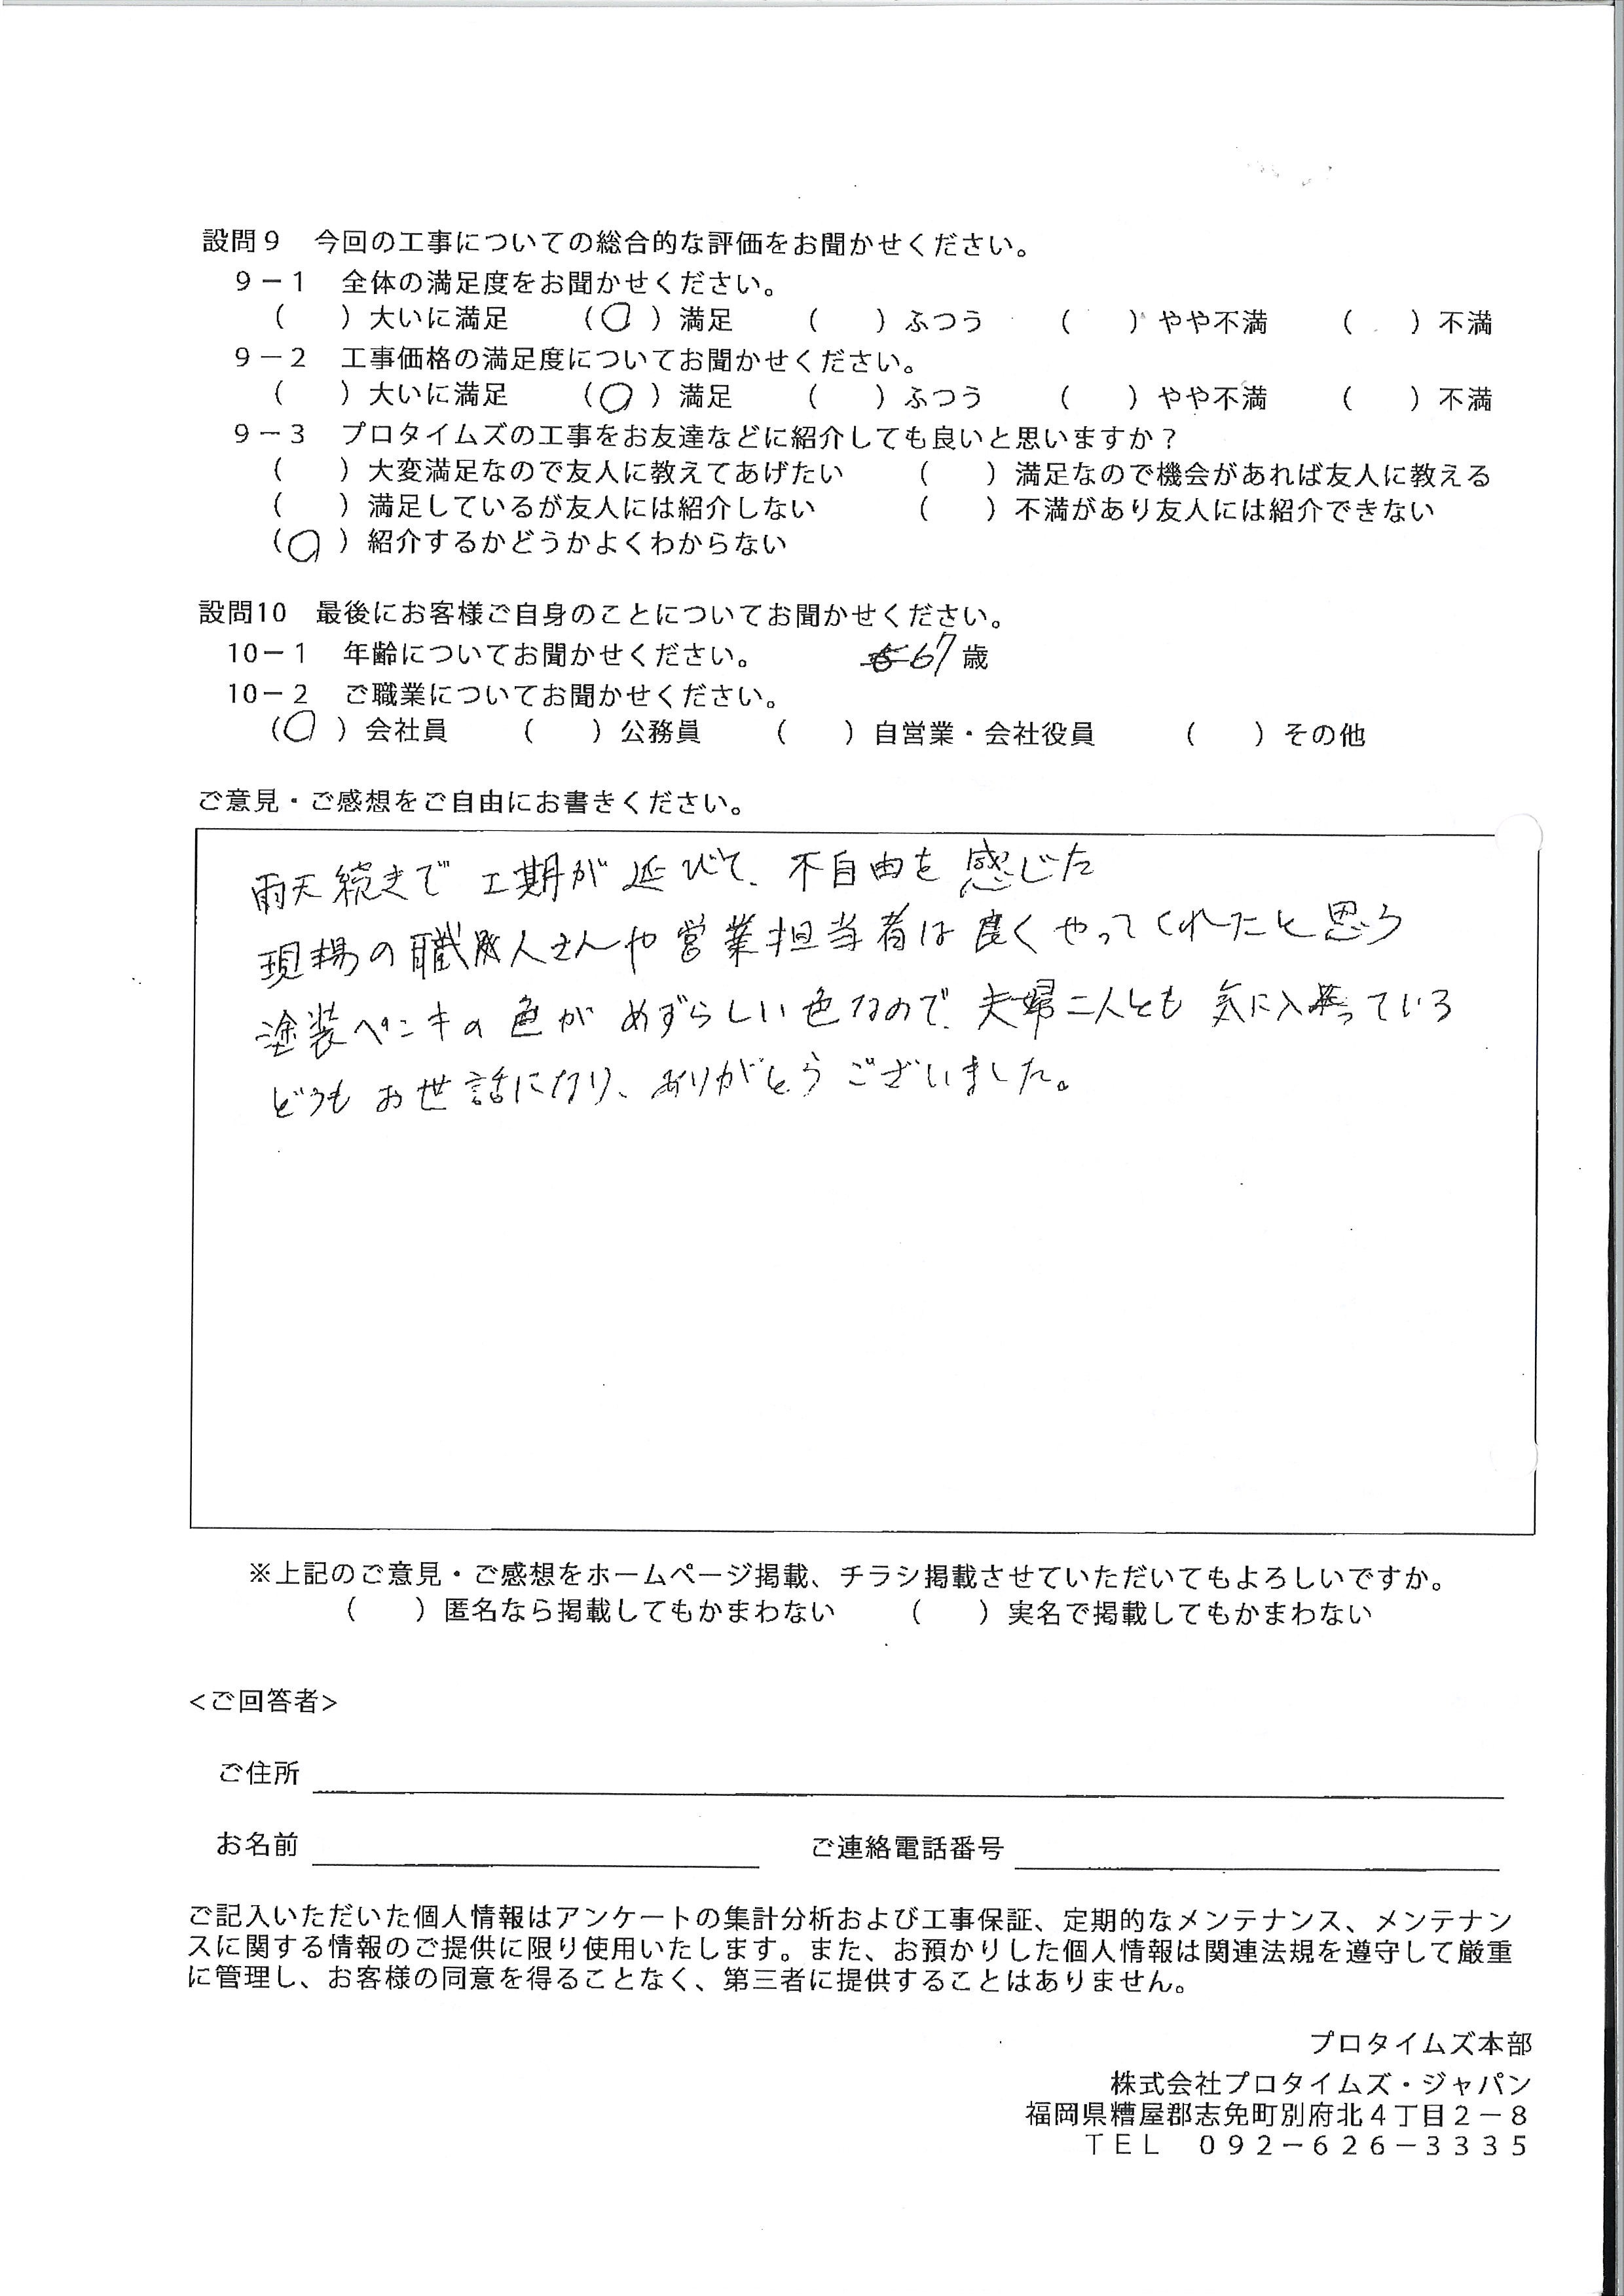 設問９　今回の工事についての総合的な評価をお聞かせください。
９－１　全体の満足度をお聞かせください。
（　）大いに満足　（○）満足　（　）ふつう　（　）やや不満　（　）不満
９－２　工事価格の満足度についてお聞かせください。
（　）大いに満足　（○）満足　（　）ふつう　（　）やや不満　（　）不満
９－３　プロタイムズの工事をお友達などに紹介しても良いと思いますか？
（　）大変満足なので友人に教えてあげたい　（　）満足なので機会があれば友人に教える
（　）満足しているが友人には紹介しない　（　）不満があり友人には紹介できない
（○）紹介するかどうかよくわからない
設問10　最後にお客様ご自身のことについてお聞かせください。
10－１　年齢についてお聞かせください。　67歳
10－２　ご職業についてお聞かせください。
（○）会社員　（　）公務員　（　）自営業・会社役員　（　）その他
ご意見・ご感想をご自由にお書きください。
雨天続きで工期が延びて、不自由を感じた
現場の職人さんや営業担当者は良くやってくれたと思う
塗装ペンキの色がめずらしい色なので、夫婦二人とも気に入っている
どうもお世話になり、ありがとうございました。
※上記のご意見・ご感想をホームページ掲載、チラシ掲載させていただいてもよろしいですか。
（　）匿名なら掲載してもかまわない　（　）実名で掲載してもかまわない
<ご回答者>
ご住所
お名前　ご連絡電話番号
ご記入いただいた個人情報はアンケートの集計分析および工事保証、定期的なメンテナンス、メンテナン
スに関する情報のご提供に限り使用いたします。また、お預かりした個人情報は関連法規を遵守して厳重
に管理し、お客様の同意を得ることなく、第三者に提供することはありません。
プロタイムズ本部
株式会社プロタイムズ・ジャパン
福岡県糟屋郡志免町別府北４丁目２－８
ＴＥＬ　０９２－６２６－３３３５